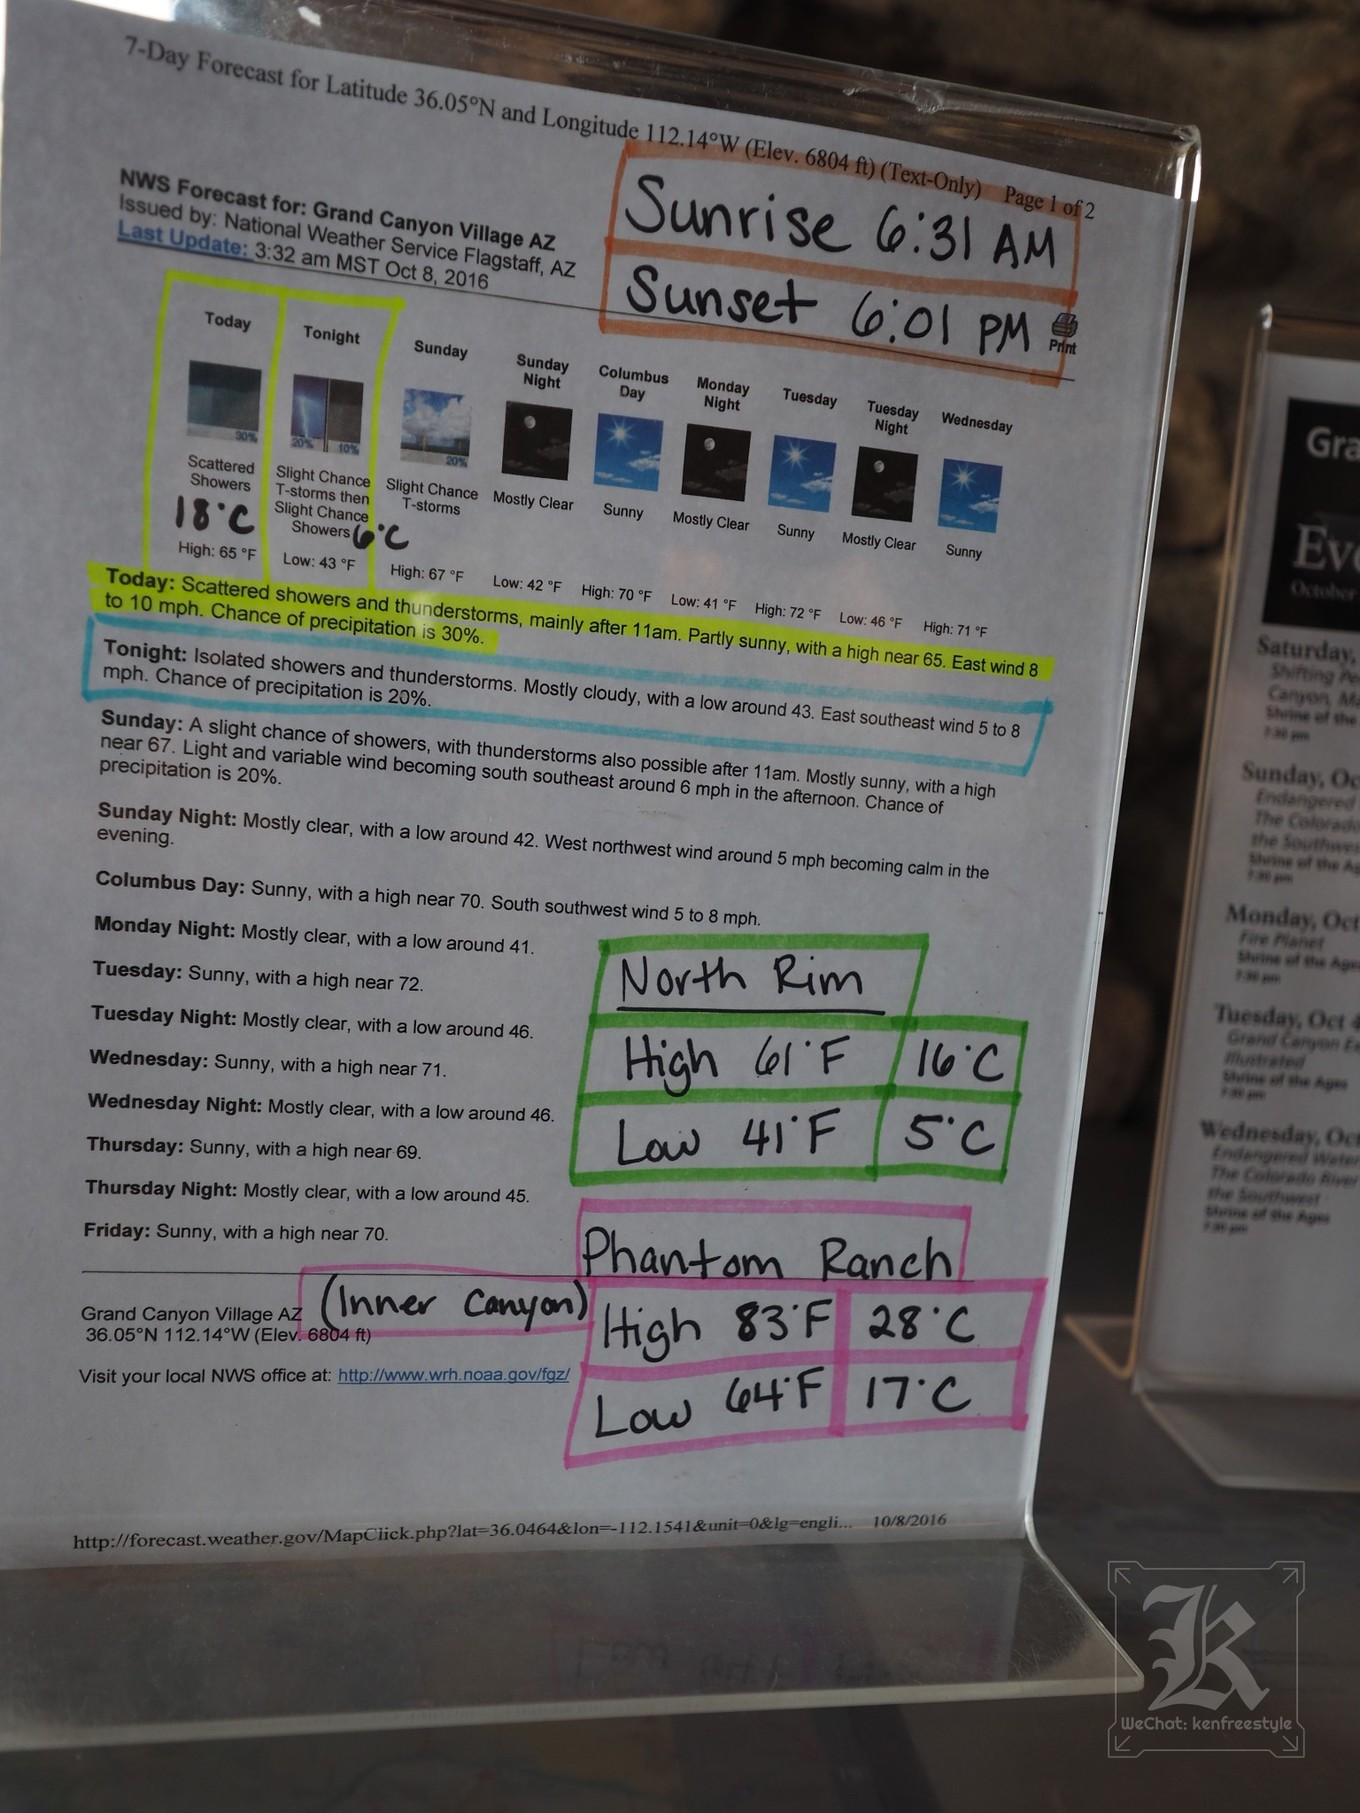 7-Day Forecast for Latitude 36.05°N and Longitude 112.14°W (Elev. 6804 ft) (Text-Only) Page 1 of 2
NWS Forecast for: Grand Canyon Village AZ
Issued by: National Weather Service Flagstaff, AZ
Last Update: 3:32 am MST Oct 8, 2016
Sunrise 6:31 AM
Sunset 6:01 PM
Print
Today
30%
Scattered
Showers
18°C
High: 65 °F
Tonight
20% 10%
Slight Chance
T-storms then
Slight Chance
Showers
6°C
Low: 43 °F
Sunday
20%
Slight Chance
T-storms
High: 67 °F
Sunday
Night
Mostly Clear
Low: 42 °F
Columbus
Day
Sunny
High: 70 °F
Monday
Night
Mostly Clear
Low: 41 °F
Tuesday
Sunny
High: 72 °F
Tuesday
Night
Mostly Clear
Low: 46 °F
Wednesday
Sunny
High: 71 °F
Today: Scattered showers and thunderstorms, mainly after 11am. Partly sunny, with a high near 65. East wind 8
to 10 mph. Chance of precipitation is 30%.
Tonight: Isolated showers and thunderstorms. Mostly cloudy, with a low around 43. East southeast wind 5 to 8
mph. Chance of precipitation is 20%.
Sunday: A slight chance of showers, with thunderstorms also possible after 11am. Mostly sunny, with a high
near 67. Light and variable wind becoming south southeast around 6 mph in the afternoon. Chance of
precipitation is 20%.
Sunday Night: Mostly clear, with a low around 42. West northwest wind around 5 mph becoming calm in the
evening.
Columbus Day: Sunny, with a high near 70. South southwest wind 5 to 8 mph.
Monday Night: Mostly clear, with a low around 41.
Tuesday: Sunny, with a high near 72.
Tuesday Night: Mostly clear, with a low around 46.
Wednesday: Sunny, with a high near 71.
Wednesday Night: Mostly clear, with a low around 46.
Thursday: Sunny, with a high near 69.
Thursday Night: Mostly clear, with a low around 45.
Friday: Sunny, with a high near 70.
North Rim
High 61°F 16°C
Low 41°F 5°C
Phantom Ranch
(Inner Canyon)
High 83°F 28°C
Low 64°F 17°C
Grand Canyon Village AZ
36.05°N 112.14°W (Elev. 6804 ft)
Visit your local NWS office at: http://www.wrh.noaa.gov/fgz/
http://forecast.weather.gov/MapClick.php?lat=36.0464&lon=-112.1541&unit=0&lg=engli... 10/8/2016
Gra
Eve
October
Saturday,
Shifting
Canyon,
Shrine of the
7:30 pm
Sunday, Oc
Endangered
The Colorado
the Southwes
Shrine of the Ag
7:30 pm
Monday, Oct
Fire Planet
Shrine of the Ages
7:30 pm
Tuesday, Oct 4
Grand Canyon
Illustrated
Shrine of the Ages
7:30 pm
Wednesday, Oc
Endangered Water
The Colorado River
the Southwest
Shrine of the Ages
7:30 pm
K
WeChat: kenfreestyle